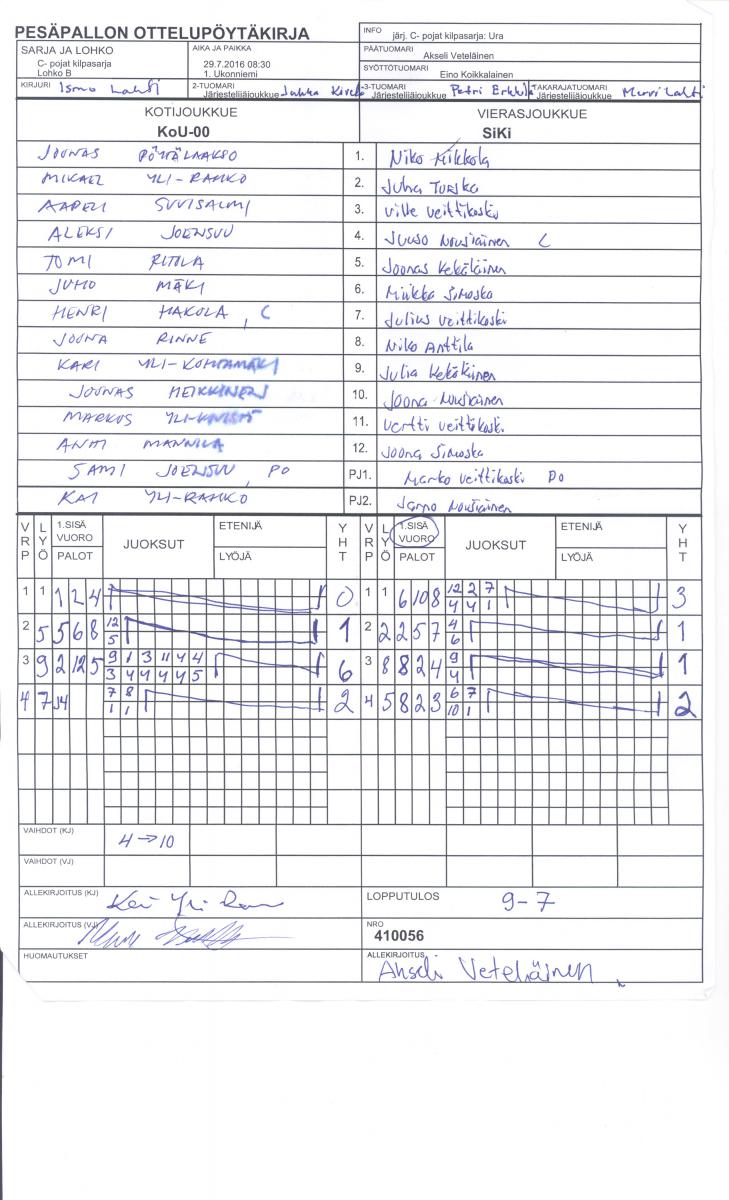 PESÄPALLON OTTELUPÖYTÄKIRJA
INFO järj. C- pojat kilpasarja: Ura
SARJA JA LOHKO
C- pojat kilpasarja
Lohko B
AIKA JA PAIKKA
29.7.2016 08:30
1. Ukonniemi
PÄÄTUOMARI
Akseli Veteläinen
SYÖTTÖTUOMARI
Eino Koikkalainen
KIRJURI Ismo Lahti
2-TUOMARI Järjestelijäjoukkue Jukka
3-TUOMARI Järjestelijäjoukkue Petri Erkkilä
TAKARAJATUOMARI Järjestelijäjoukkue Mervi Lahti
KOTIJOUKKUE
KoU-00
VIERASJOUKKUE
SiKi
JOONAS PÖYTÄLAAKSO 1. Niko Mikkola
MIKAEL YLI-RAHKO 2. Juha Turska
AAPELI SUVISALMI 3. Ville Veittikoski
ALEKSI JOENSUU 4. Juuso Nousiainen C
TOMI RITOLA 5. Joonas Kekäläinen
JUHO MÄKI 6. Miikka Simoska
HENRI HAKOLA, C 7. Julius Veittikoski
JOONA RINNE 8. Niko Anttila
KARI YLI-KOHTAMÄKI 9. Julia
JOONAS HEIKKINEN 10. Joona Nousiainen
MARKUS 11. Vertti Veittikoski
ANTTI MANNILA 12. Joona Simoska
SAMI JOENSUU, PO PJ1. Marko Veittikoski PO
KAI YLI-RAHKO PJ2. Jarno Nousiainen
VRP LYÖ 1.SISÄ VUORO PALOT JUOKSUT ETENIJÄ LYÖJÄ YHT VRP LYÖ 1.SISÄ VUORO PALOT JUOKSUT ETENIJÄ LYÖJÄ YHT
1 1 1 2 4 0 1 1 6 10 8 12 2 7 3
4 4 1
2 5 5 6 8 12 1 2 2 2 5 7 4 1
5 6
3 9 2 12 5 9 1 3 11 4 4 6 3 8 8 2 4 9 1
3 4 4 4 4 5 4
4 7 14 7 8 2 4 5 8 2 3 6 7 2
1 1 10 1
VAIHDOT (KJ) 4→10
VAIHDOT (VJ)
ALLEKIRJOITUS (KJ)
LOPPUTULOS 9-7
ALLEKIRJOITUS (VJ)
NRO
410056
HUOMAUTUKSET
ALLEKIRJOITUS
Akseli Veteläinen